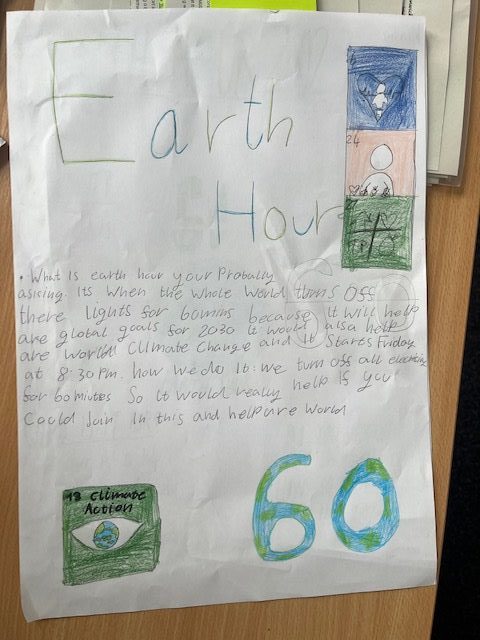 Earth
Hour
24
27
• What Is earth hour your Probably
asising. Its When the whole World turns Off
there lights for 60mins because It will help
are global goals for 2030 It would alsa help
are World Climate Change and It Starts Friday
at 8:30 Pm. how we do It: we turn off all electricity
for 60 miutes So It would really help If you
Could Join In this and help are World
60
13 Climate
Action
60